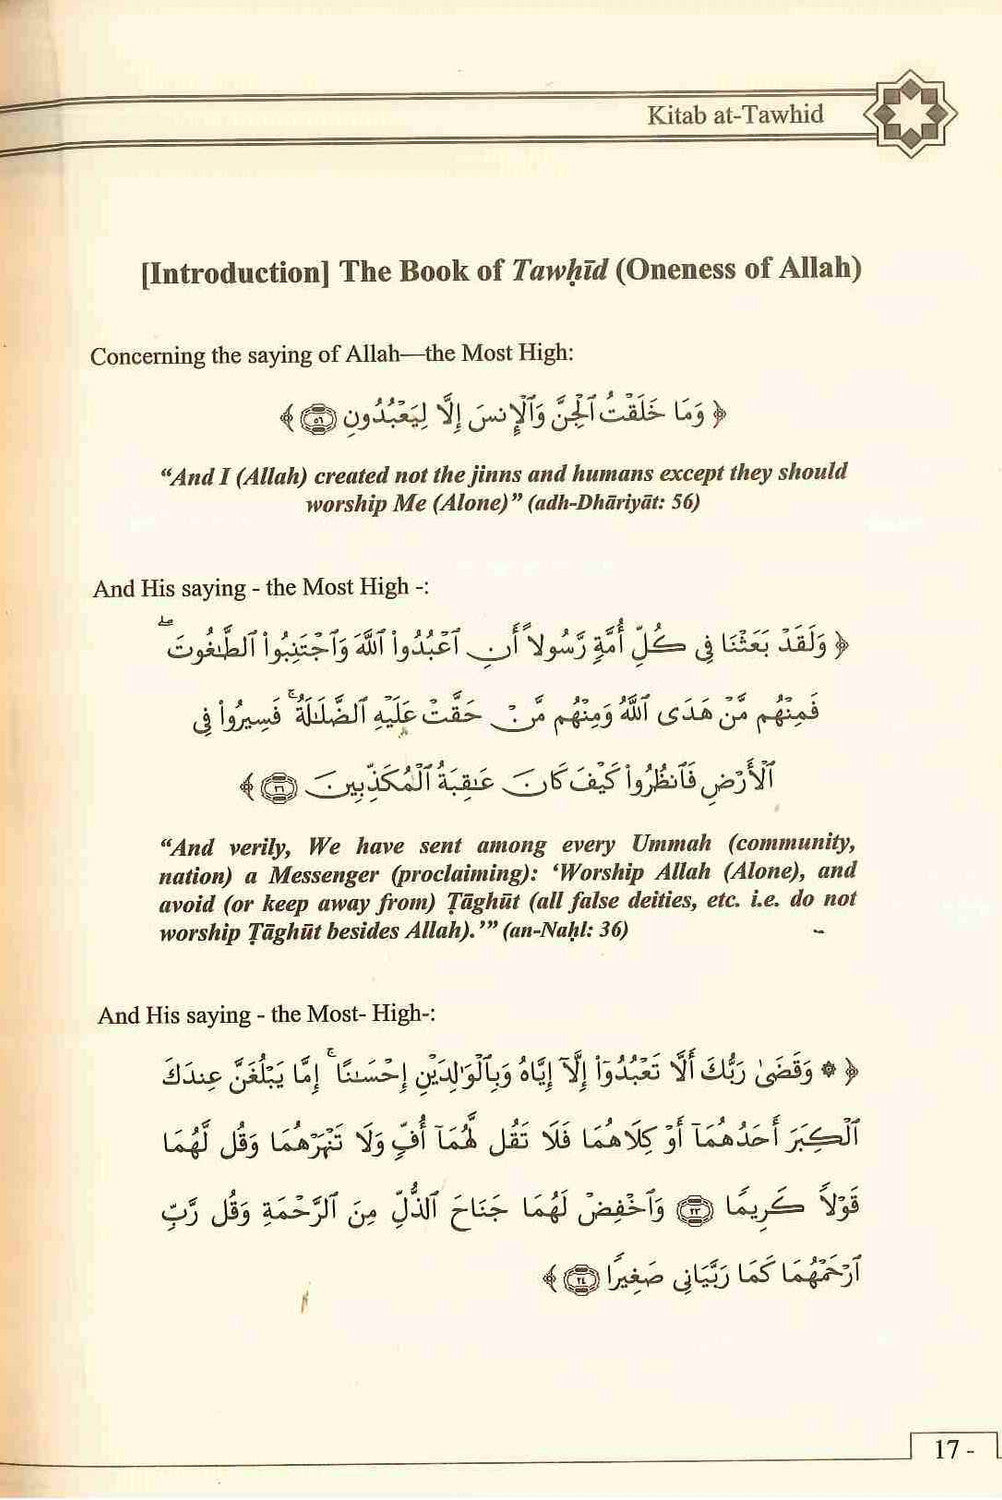 Kitab at-Tawhid
[Introduction] The Book of Tawḥīd (Oneness of Allah)
Concerning the saying of Allah—the Most High:
﴿ وَمَا خَلَقْتُ ٱلْجِنَّ وَٱلْإِنسَ إِلَّا لِيَعْبُدُونِ ٥٦ ﴾
“And I (Allah) created not the jinns and humans except they should
worship Me (Alone)” (adh-Dhāriyāt: 56)
And His saying - the Most High -:
﴿ وَلَقَدْ بَعَثْنَا فِى كُلِّ أُمَّةٍ رَّسُولاً أَنِ ٱعْبُدُوا۟ ٱللَّهَ وَٱجْتَنِبُوا۟ ٱلطَّـٰغُوتَ ۖ
فَمِنْهُم مَّنْ هَدَى ٱللَّهُ وَمِنْهُم مَّنْ حَقَّتْ عَلَيْهِ ٱلضَّلَـٰلَةُ ۚ فَسِيرُوا۟ فِى
ٱلْأَرْضِ فَٱنظُرُوا۟ كَيْفَ كَانَ عَـٰقِبَةُ ٱلْمُكَذِّبِينَ ٣٦ ﴾
“And verily, We have sent among every Ummah (community,
nation) a Messenger (proclaiming): ‘Worship Allah (Alone), and
avoid (or keep away from) Ṭāghūt (all false deities, etc. i.e. do not
worship Ṭāghūt besides Allah).’” (an-Naḥl: 36)
And His saying - the Most- High-:
﴿ ۞ وَقَضَىٰ رَبُّكَ أَلَّا تَعْبُدُوٓا۟ إِلَّآ إِيَّاهُ وَبِٱلْوَٰلِدَيْنِ إِحْسَـٰنًا ۚ إِمَّا يَبْلُغَنَّ عِندَكَ
ٱلْكِبَرَ أَحَدُهُمَآ أَوْ كِلَاهُمَا فَلَا تَقُل لَّهُمَآ أُفٍّ وَلَا تَنْهَرْهُمَا وَقُل لَّهُمَا
قَوْلاً كَرِيمًا ٢٣ وَٱخْفِضْ لَهُمَا جَنَاحَ ٱلذُّلِّ مِنَ ٱلرَّحْمَةِ وَقُل رَّبِّ
ٱرْحَمْهُمَا كَمَا رَبَّيَانِى صَغِيرًا ٢٤ ﴾
17 -